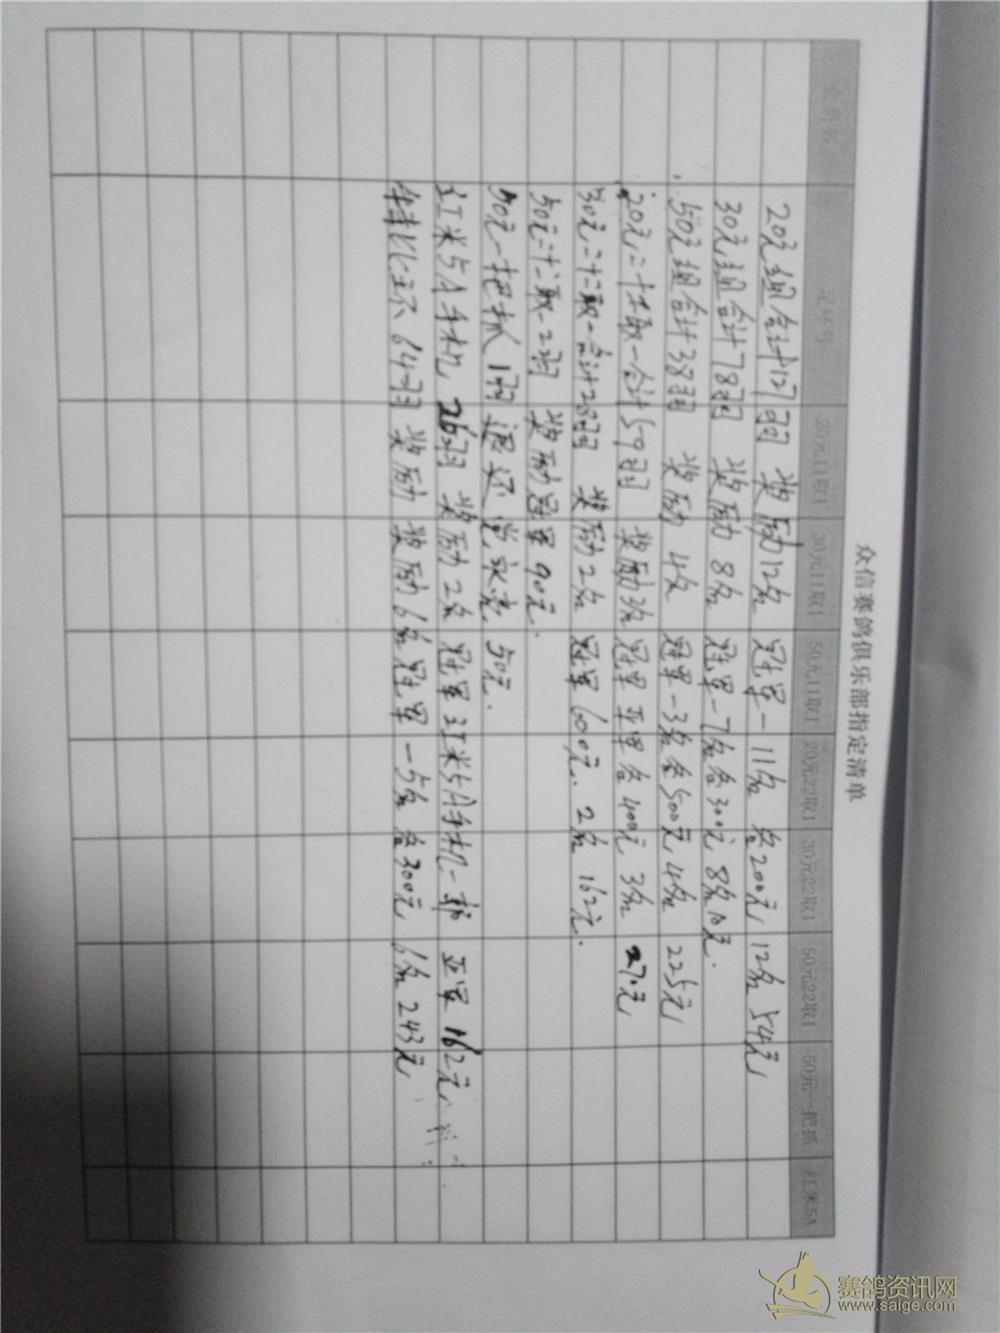 众信赛鸽俱乐部指定清单
会员名 足环号 20元11取1 30元11取1 50元11取1 20元22取1 30元22取1 50元22取1 50元一把抓 红米5A
20元组合计127羽 奖励12名 冠军—11名 各200元, 12名 54元,
30元组合计78羽 奖励8名 冠军—7名各300元 8名10元.
50元组合计38羽 奖励4名 冠军—3名各500元 4名 225元,
20元二十二取一合计59羽 奖励3名 冠军 亚军各400元 3名 270元,
30元二十二取一合计28羽 奖励2名 冠军600元. 2名 162元.
50元二十二取一2羽 奖励冠军90元.
50元一把抓 1羽 退还 50元.
红米5A手机, 26羽 奖励2名 冠军红米5A手机一部 亚军162元,
特比环 64羽 奖励 奖励6名 冠军—5名 各300元 6名 243元,
赛鸽资讯网
www.saige.com